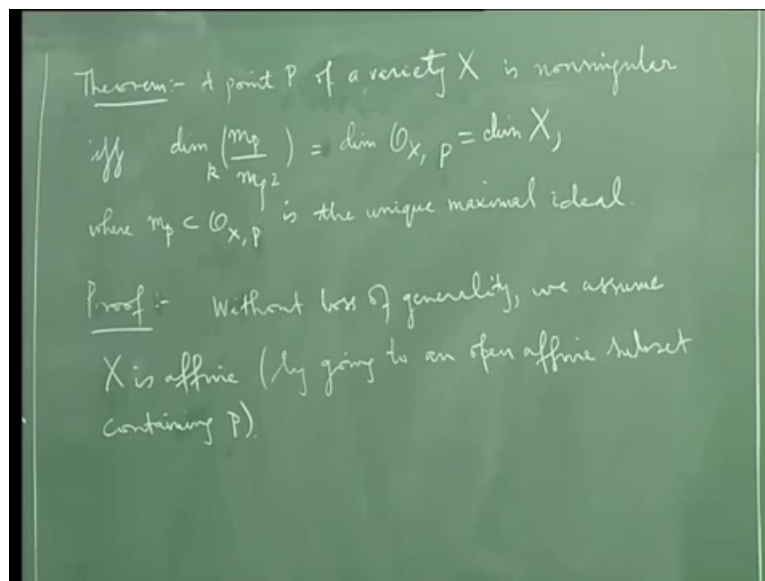 Theorem:- A point P of a variety X is nonsingular
iff dim_k (m_P / m_P^2) = dim O_{X, P} = dim X,
where m_P ⊂ O_{X, P} is the unique maximal ideal.
Proof:- Without loss of generality, we assume
X is affine (by going to an open affine subset
containing P).